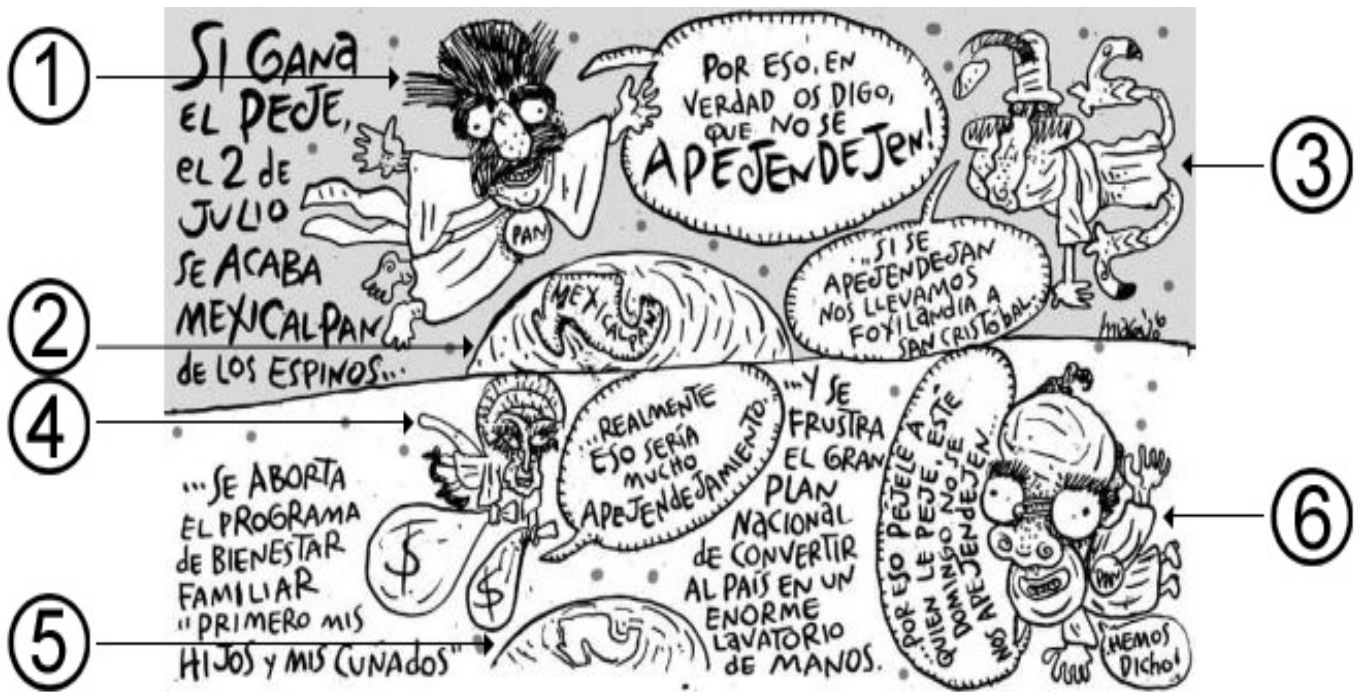 1
2
3
4
5
6
SI GANA
EL PEJE,
EL 2 de
JULIO
SE ACABA
MEXICALPAN
de LOS ESPINOS...
PAN
POR ESO, EN
VERdAD OS DIGO,
QUE NO SE
APEJENDEJEN!
MEXICALPAN
...SI SE
APEJENDEJAN
NOS LLEVAMOS
FOXILANDIA A
SAN CRISTÓBAL...
...SE ABORTA
EL PROGRAMA
de BIENESTAR
FAMILIAR
"PRIMERO MIS
HIJOS y MIS CUÑADOS"
$
$
...REALMENTE
ESO SERÍA
MUCHO
APEJENdEJAMIENTO.
...Y SE
FRUSTRA
EL GRAN
PLAN
NACIONAL
de CONVERTIR
AL PAÍS EN UN
ENORME
LAVATORIO
de MANOS.
...POR ESO PEJELE A
QUIEN LE PEJE, ESTE
DOMINGO NO SE
NOS APEJENdEJEN...
PAN
¡HEMOS
DICHO!